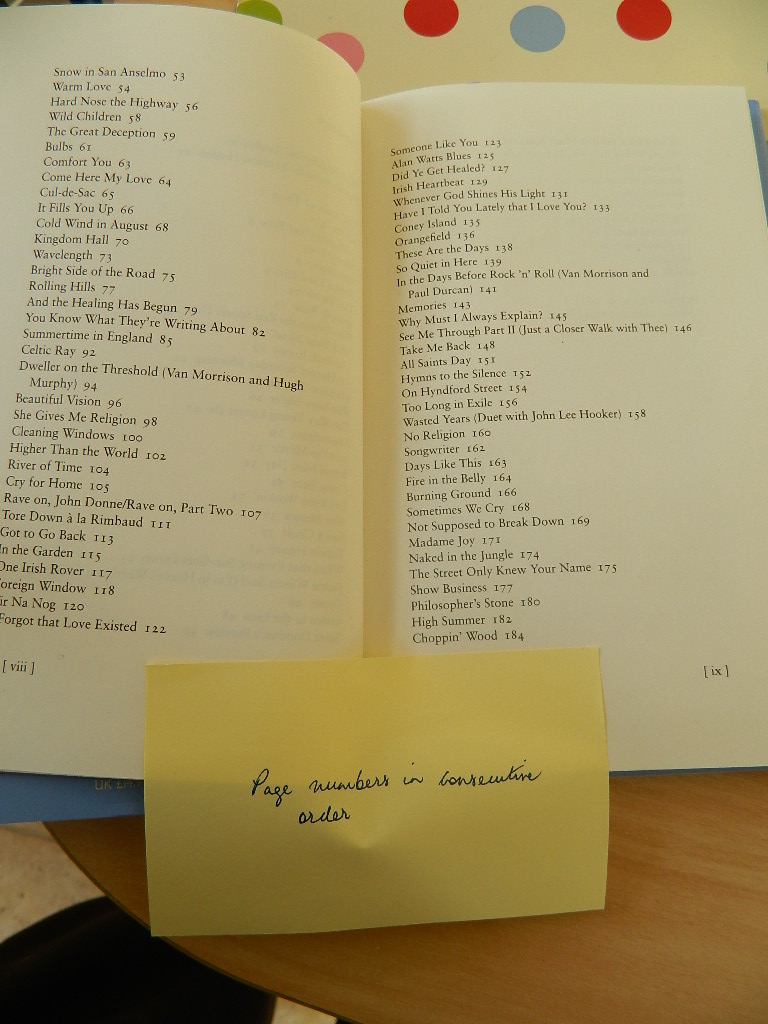 Snow in San Anselmo 53
Warm Love 54
Hard Nose the Highway 56
Wild Children 58
The Great Deception 59
Bulbs 61
Comfort You 63
Come Here My Love 64
Cul-de-Sac 65
It Fills You Up 66
Cold Wind in August 68
Kingdom Hall 70
Wavelength 73
Bright Side of the Road 75
Rolling Hills 77
And the Healing Has Begun 79
You Know What They're Writing About 82
Summertime in England 85
Celtic Ray 92
Dweller on the Threshold (Van Morrison and Hugh
Murphy) 94
Beautiful Vision 96
She Gives Me Religion 98
Cleaning Windows 100
Higher Than the World 102
River of Time 104
Cry for Home 105
Rave on, John Donne/Rave on, Part Two 107
Tore Down à la Rimbaud 111
Got to Go Back 113
In the Garden 115
One Irish Rover 117
oreign Window 118
ir Na Nog 120
Forgot that Love Existed 122
[ viii ]
Someone Like You 123
Alan Watts Blues 125
Did Ye Get Healed? 127
Irish Heartbeat 129
Whenever God Shines His Light 131
Have I Told You Lately that I Love You? 133
Coney Island 135
Orangefield 136
These Are the Days 138
So Quiet in Here 139
In the Days Before Rock 'n' Roll (Van Morrison and
Paul Durcan) 141
Memories 143
Why Must I Always Explain? 145
See Me Through Part II (Just a Closer Walk with Thee) 146
Take Me Back 148
All Saints Day 151
Hymns to the Silence 152
On Hyndford Street 154
Too Long in Exile 156
Wasted Years (Duet with John Lee Hooker) 158
No Religion 160
Songwriter 162
Days Like This 163
Fire in the Belly 164
Burning Ground 166
Sometimes We Cry 168
Not Supposed to Break Down 169
Madame Joy 171
Naked in the Jungle 174
The Street Only Knew Your Name 175
Show Business 177
Philosopher's Stone 180
High Summer 182
Choppin' Wood 184
[ ix ]
Page numbers in consecutive
order